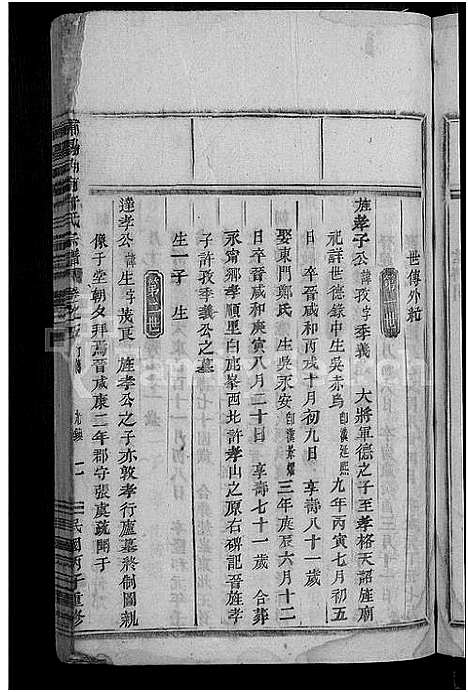 世傳外紀
旌孝子公諱孜字季義 大將軍德之子至孝格天詔旌廟
祀詳世德錄中生吳赤烏即漢延熙九年丙寅七月初五
日 卒晉咸和丙戌十月初九日 享壽八十一歲
娶東門鄭氏 生吳永安即漢景燿三年庚辰六月十二
日 卒晉咸和庚寅八月二十日 享壽七十一歲 合葬
永甯鄉孝順里白鹿峯西北許孝山之原右碑記晉旌孝
子許孜季義公之墓
生一子 生
第二世
達孝公諱生字 旌孝公之子亦敦孝行廬墓將制圖親
像于堂朝夕拜焉晉咸康二年郡守張虞疏聞于
氏宗譜
民國丙子重修